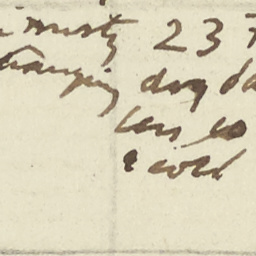 misty 237
changing dry da
less so
& cold